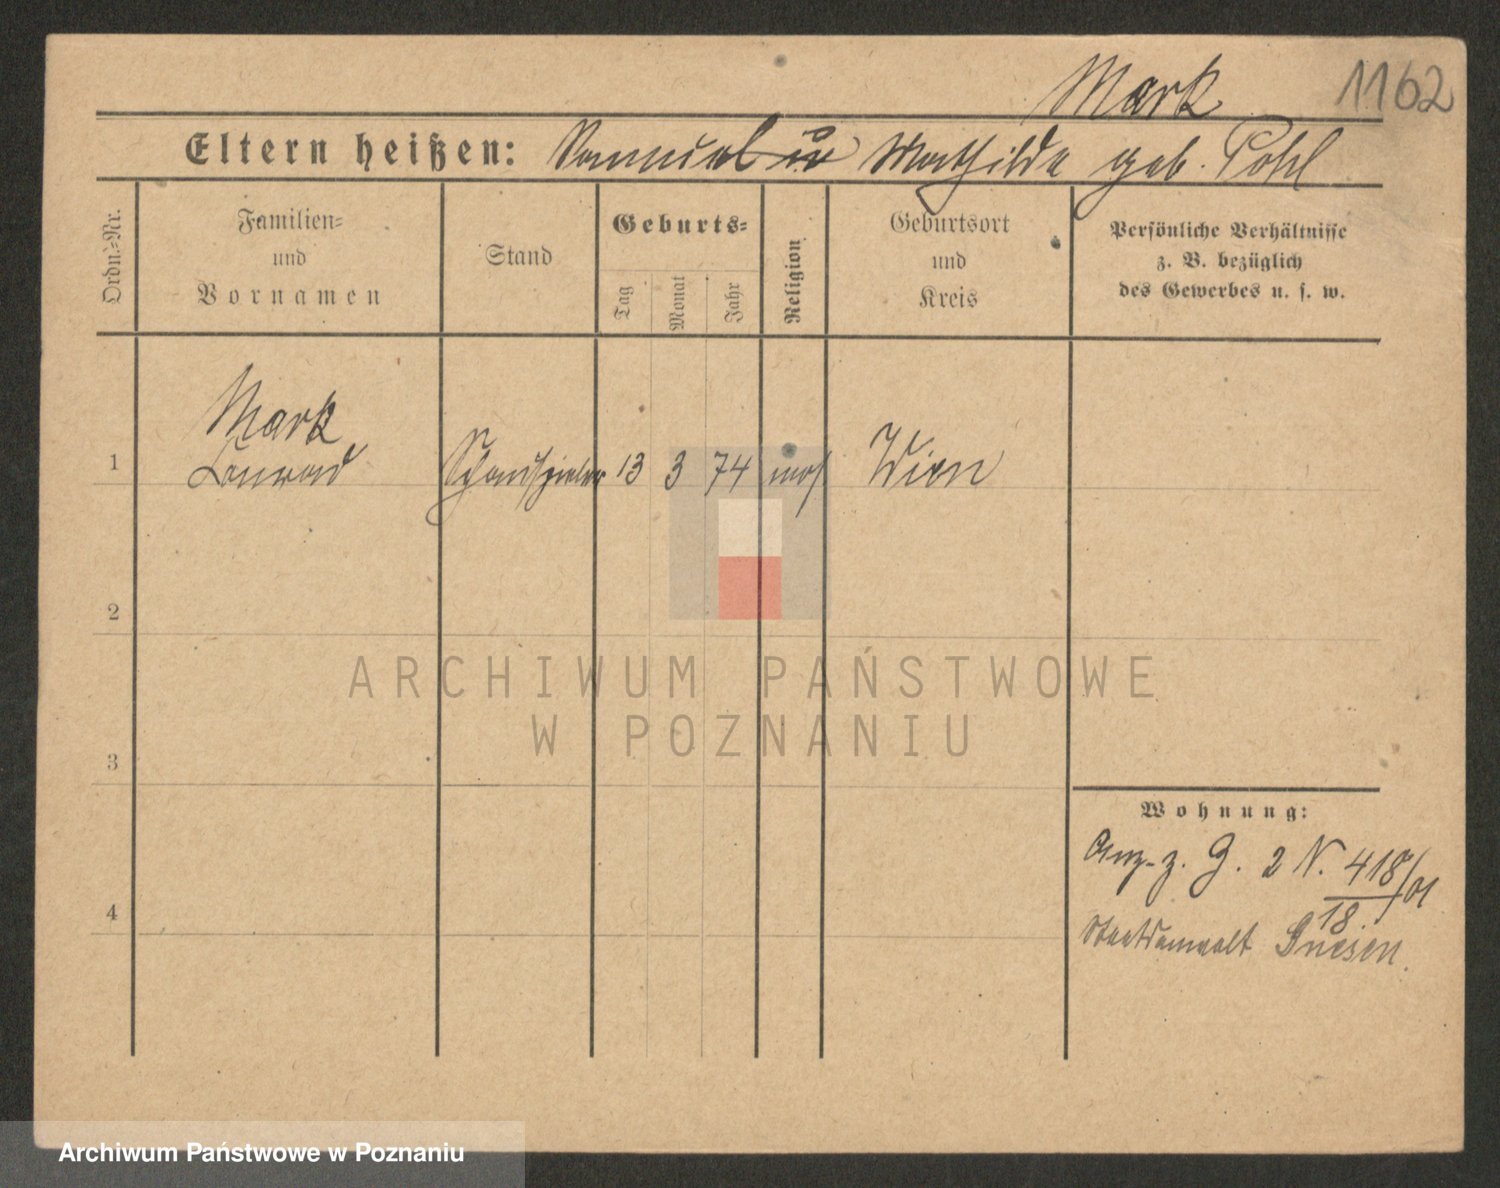 Mark 1162
Eltern heißen: Samuel u Mathilde geb. Pohl
Ordn.=Nr.
Familien=
und
Vornamen
Stand
Geburts=
Tag
Monat
Jahr
Religion
Geburtsort
und
Kreis
Persönliche Verhältnisse
z. B. bezüglich
des Gewerbes u. s. w.
Mark
1 Conrad Schauspieler 13 3 74 mos Wien
2
ARCHIWUM PAŃSTWOWE
W POZNANIU
3
Wohnung:
Anz. z. G. 2 N. 418/01
18.
4
Staatsanwalt Gnesen.
Archiwum Państwowe w Poznaniu